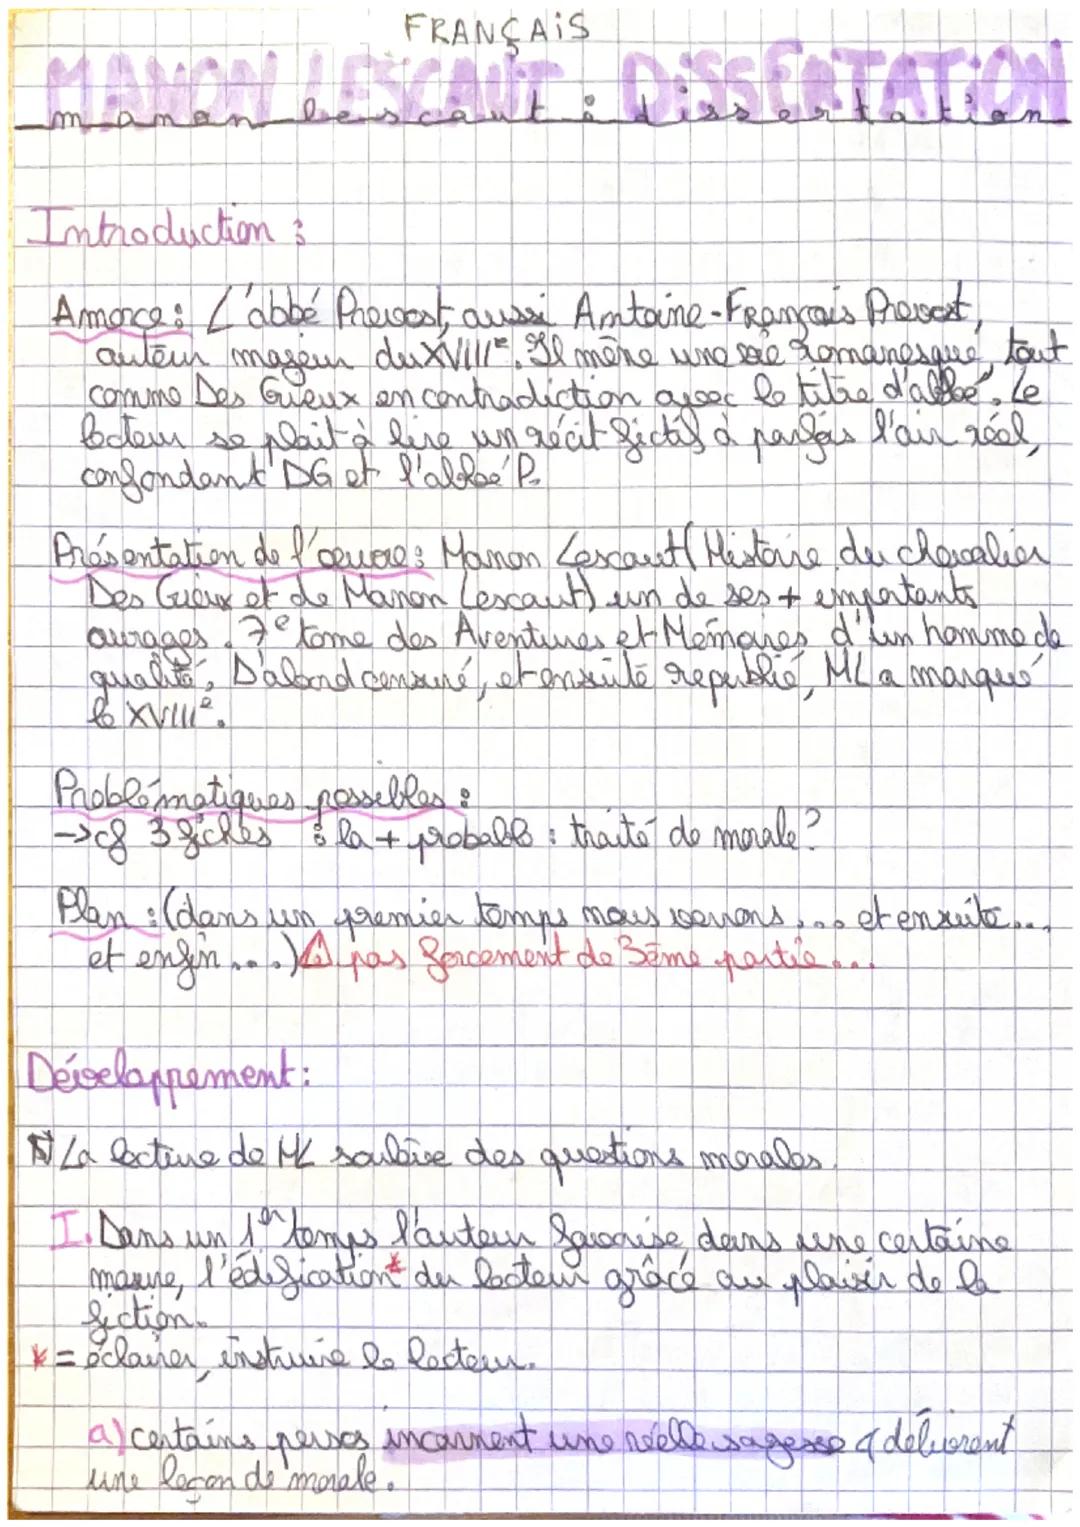 FRANÇAIS
MANON LESCAUT DISSERTATION
manon lescaut : dissertation
Introduction :
Amorce : L'abbé Prevost, aussi Antoine-François Prevost,
auteur majeur du XVIIIe. Il mène une vie romanesque, tout
comme Des Grieux en contradiction avec le titre d'abbé. Le
lecteur se plait à lire un récit fictif à parfois l'air réel,
confondant DG et l'abbé P.
Présentation de l'œuvre : Manon Lescaut (Histoire du chevalier
Des Grieux et de Manon Lescaut) un de ses + importants
ouvrages. 7e tome des Aventures et Mémoires d'un homme de
qualité. D'abord censuré, et ensuite republié, ML a marqué
le XVIIIe.
Problématiques possibles :
-> cf 3 fiches : la + probable : traité de morale ?
Plan : (dans un premier temps nous verrons ... et ensuite ...
et enfin ...) ⚠ pas forcement de 3ème partie ...
Développement :
La lecture de ML soulève des questions morales.
I. Dans un 1er temps l'auteur favorise, dans une certaine
mesure, l'édification* du lecteur grâce au plaisir de la
fiction.
* = éclairer, instruire le lecteur.
a) certains persos incarnent une réelle sagesse & délivrent
une leçon de morale.